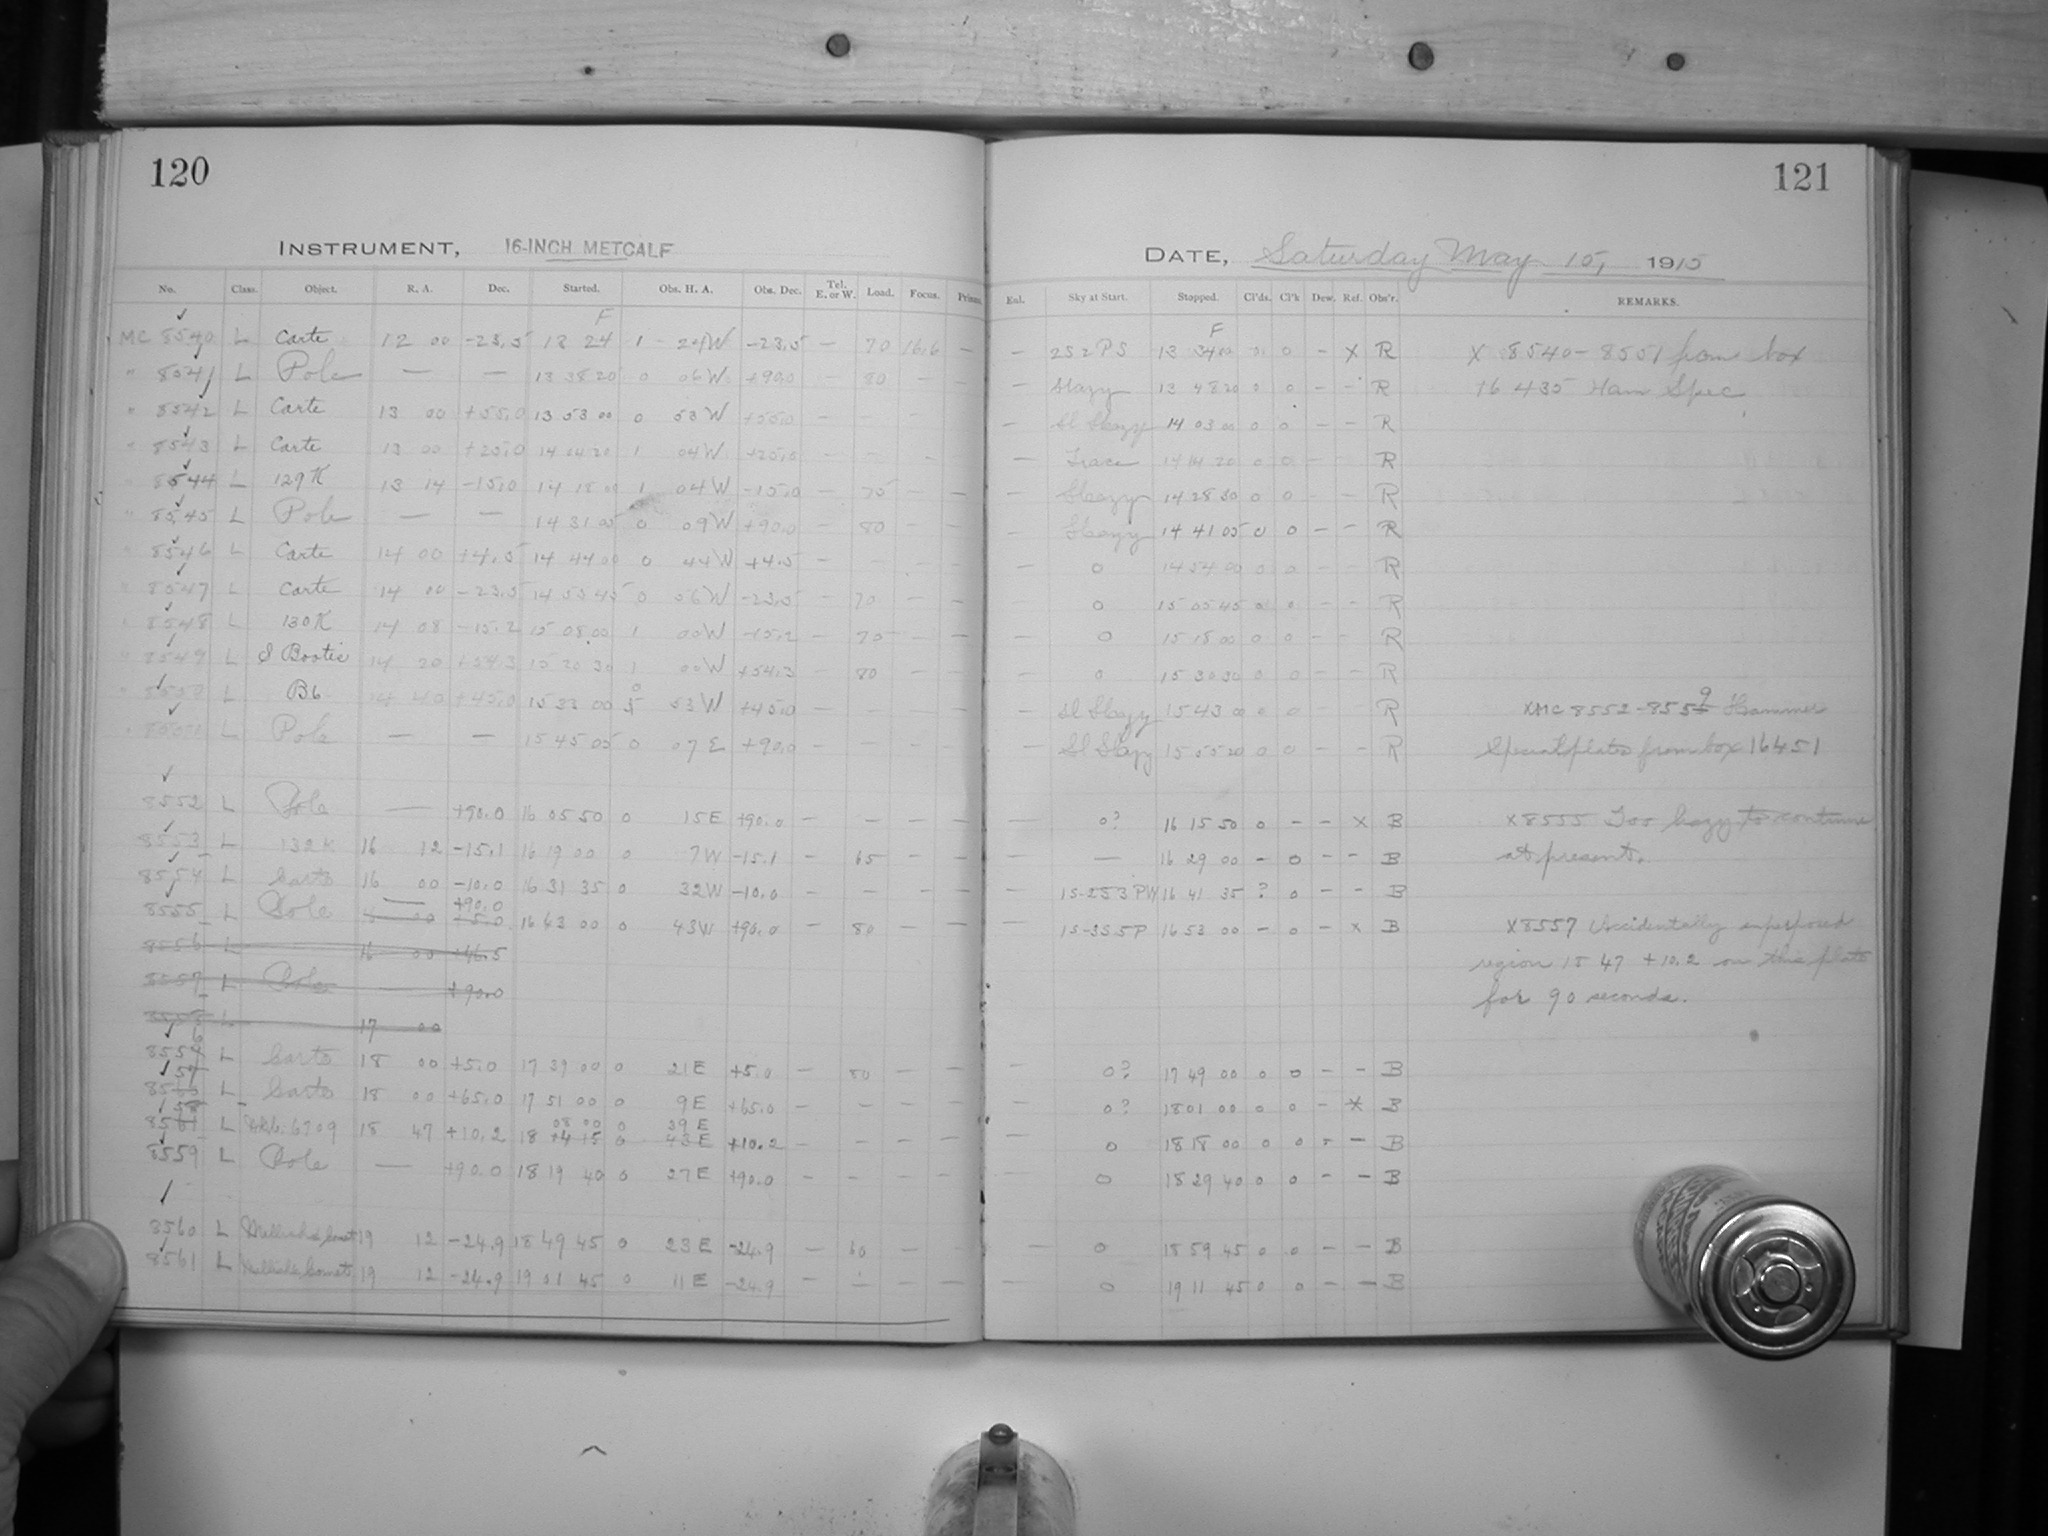 120
INSTRUMENT, 16-INCH METCALF
No. Class. Object. R. A. Dec. Started. Obs. H. A. Obs. Dec. Tel. E. or W. Load. Focus.
F
MC 8540 L Carte 12 00 -23.5 13 24 1 24W -23.5 — 70 16.6 —
" 8541 L Pole — — 13 38 20 0 06W +90.0 — 80 — —
" 8542 L Carte 13 00 +55.0 13 53 00 0 53W +55.0 —
" 8543 L Carte 13 00 +25.0 14 04 20 1 04W +25.0 —
" 8544 L 129K 13 14 -15.0 14 18 00 1 04W -15.0 — 75 — —
" 8545 L Pole — — 14 31 05 0 09W +90.0 — 80 — —
" 8546 L Carte 14 00 +4.5 14 44 00 0 44W +4.5 — — — —
" 8547 L Carte 14 00 -23.5 14 55 45 0 56W -23.5 — 70 — —
" 8548 L 130K 14 08 -15.2 15 08 00 1 00W -15.2 — 75 — —
" 8549 L S Bootis 14 20 +54.3 15 20 30 1 00W +54.3 — 80 — —
" 8550 L B6 14 40 +45.0 15 33 00 0 53W +45.0 — — — —
" 8551 L Pole — — 15 45 05 0 07E +90.0 — — — —
8552 L Pole — +90.0 16 05 50 0 15E +90.0 — — — —
8553 L 132K 16 12 -15.1 16 19 00 0 7W -15.1 — 65 — —
8554 L Carte 16 00 -10.0 16 31 35 0 32W -10.0 — — — —
8555 L Pole — +90.0 16 43 00 0 43W +90.0 — 80 — —
8556 L 16 00 +46.5
8557 L Pole — +90.0
8558 L 17 00
8556 L Carte 18 00 +5.0 17 39 00 0 21E +5.0 — 80 — —
8557 L Carte 18 00 +65.0 17 51 00 0 9E +65.0 — — — —
08 00 0 39E
8558 L 6709 18 47 +10.2 18 +4 15 0 43E +10.2 — — — —
8559 L Pole — +90.0 18 19 40 0 27E +90.0 — — — —
8560 L Mellish's Comet 19 12 -24.9 18 49 45 0 23E -24.9 — 60 — —
8561 L Mellish's Comet 19 12 -24.9 19 01 45 0 11E -24.9 — — — —
121
DATE, Saturday May 15, 1915
Enl. Sky at Start. Stopped. Cl'ds. Cl'k Dew. Ref. Obs'r. REMARKS.
F
— 2S2PS 13 34 00 0 0 — X R X 8540-8551 from box
— Hazy 13 48 20 0 0 — — R 16 435 Ham Spec
— Sl Hazy 14 03 00 0 0 — — R
— Trace 14 14 20 0 0 — R
— Hazy 14 28 30 0 0 — — R
— Hazy 14 41 05 0 0 — — R
— 0 14 54 00 0 0 — — R
— 0 15 05 45 0 0 — — R
— 0 15 18 00 0 0 — — R
— 0 15 30 30 0 0 — — R
— Sl Hazy 15 43 00 0 0 R XMC 8552-8559 Hammer
— Sl Hazy 15 55 20 0 0 — — R Special plates from box 16451
— 0? 16 15 50 0 — — X B X8555 Too hazy to continue
— — 16 29 00 — 0 — — B at present.
— 1S-2S3PW 16 41 35 ? 0 — — B
— 1S-3S5P 16 53 00 — 0 — X B X8557 Accidentally superposed
region 18 47 +10.2 on this plate
for 90 seconds.
— 0? 17 49 00 0 0 — — B
— 0? 18 01 00 0 0 — X B
— 0 18 18 00 0 0 — — B
— 0 18 29 40 0 0 — — B
— 0 18 59 45 0 0 — — B
— 0 19 11 45 0 0 — — B